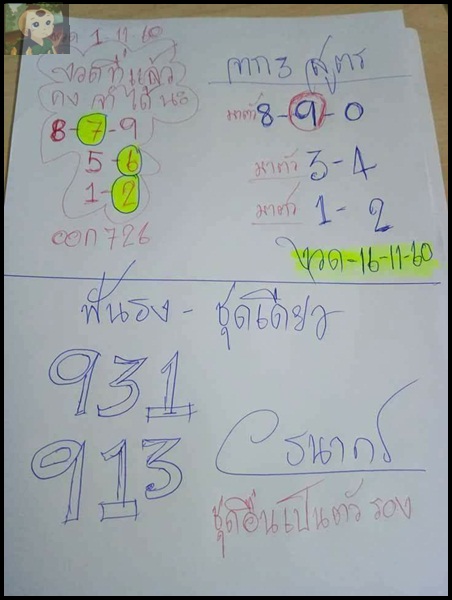 1 11 60
งวดที่แล้ว
คง จำ ได้ นะ
8-7-9
5-6
1-2
ออก 726
จาก 3 สูตร
มาตัว 8-9-0
มาตัว 3-4
มาตัว 1-2
งวด-16-11-60
ฟันธง - ชุดเดียว
931
913
ธนากร
ชุดอื่นเป็นตัว รอง